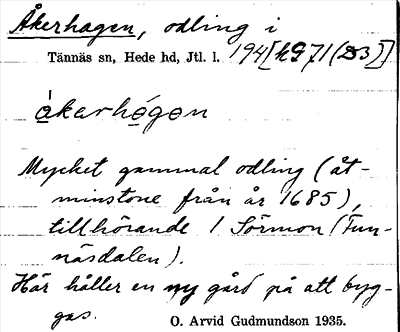 Åkerhagen, odling i
Tännäs sn, Hede hd, Jtl. l. 194[hG71(D3)]
åkarhógon
Mycket gammal odling (åt-
minstone från år 1685),
tillhörande 1 Sörmon (Fun-
näsdalen).
Här håller en ny gård på att byg-
gas.
O. Arvid Gudmundson 1935.